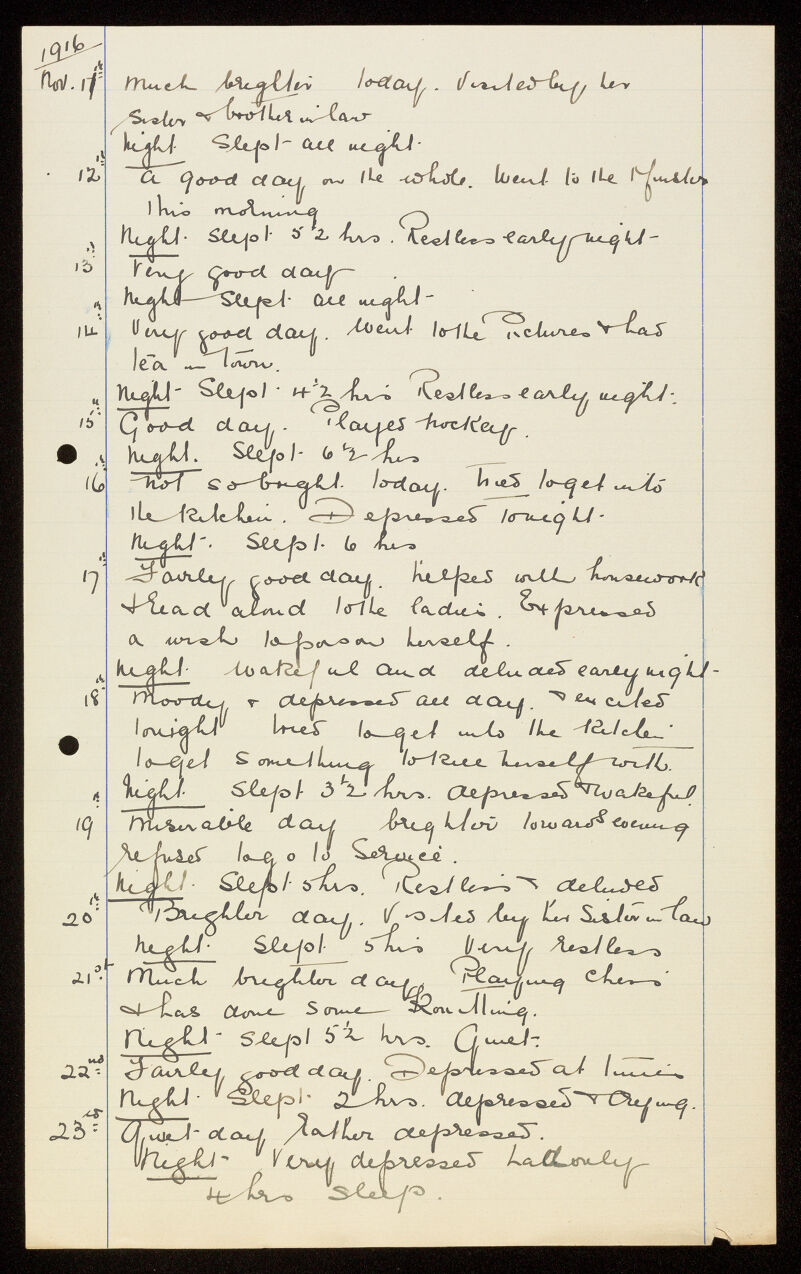 1916
Nov. 11th Much brighter today. Visited by her
Sister & brother in law
Night Slept all night.
12th A good day on the whole. Went to the Minster
this morning
Night. Slept 5½ hrs. Restless early night
13th Very good day
Night Slept all night
14th Very good day. Went to the Pictures & had
tea in Town.
Night Slept 4½ hrs Restless early night.
15th Good day. Played hockey.
Night. Slept 6½ hrs
16th Not so bright today. Tried to get into
the kitchen. Depressed tonight.
Night. Slept 6 hrs
17th Fairly good day. Helped with housework
& read aloud to the ladies. Expressed
a wish to poison herself.
Night. Wakeful and deluded early night
18th Moody & depressed all day. & excited
tonight tried to get into the kitchen
to get something to kill herself with.
Night. Slept 3½ hrs. depressed & wakeful.
19th Miserable day brighter towards evening
refused to go to Service.
Night. Slept 5 hrs. Restless & deluded
20th Brighter day. Visited by her Sister in law
Night. Slept 5 hrs Very restless
21st Much brighter day, Playing chess
& has done some Knitting.
Night Slept 5½ hrs. Quiet.
22nd Fairly good day. Depressed at times
Night. Slept 2 hrs. depressed & crying.
23rd Quiet day rather depressed.
Night Very depressed had only
4 hrs sleep.